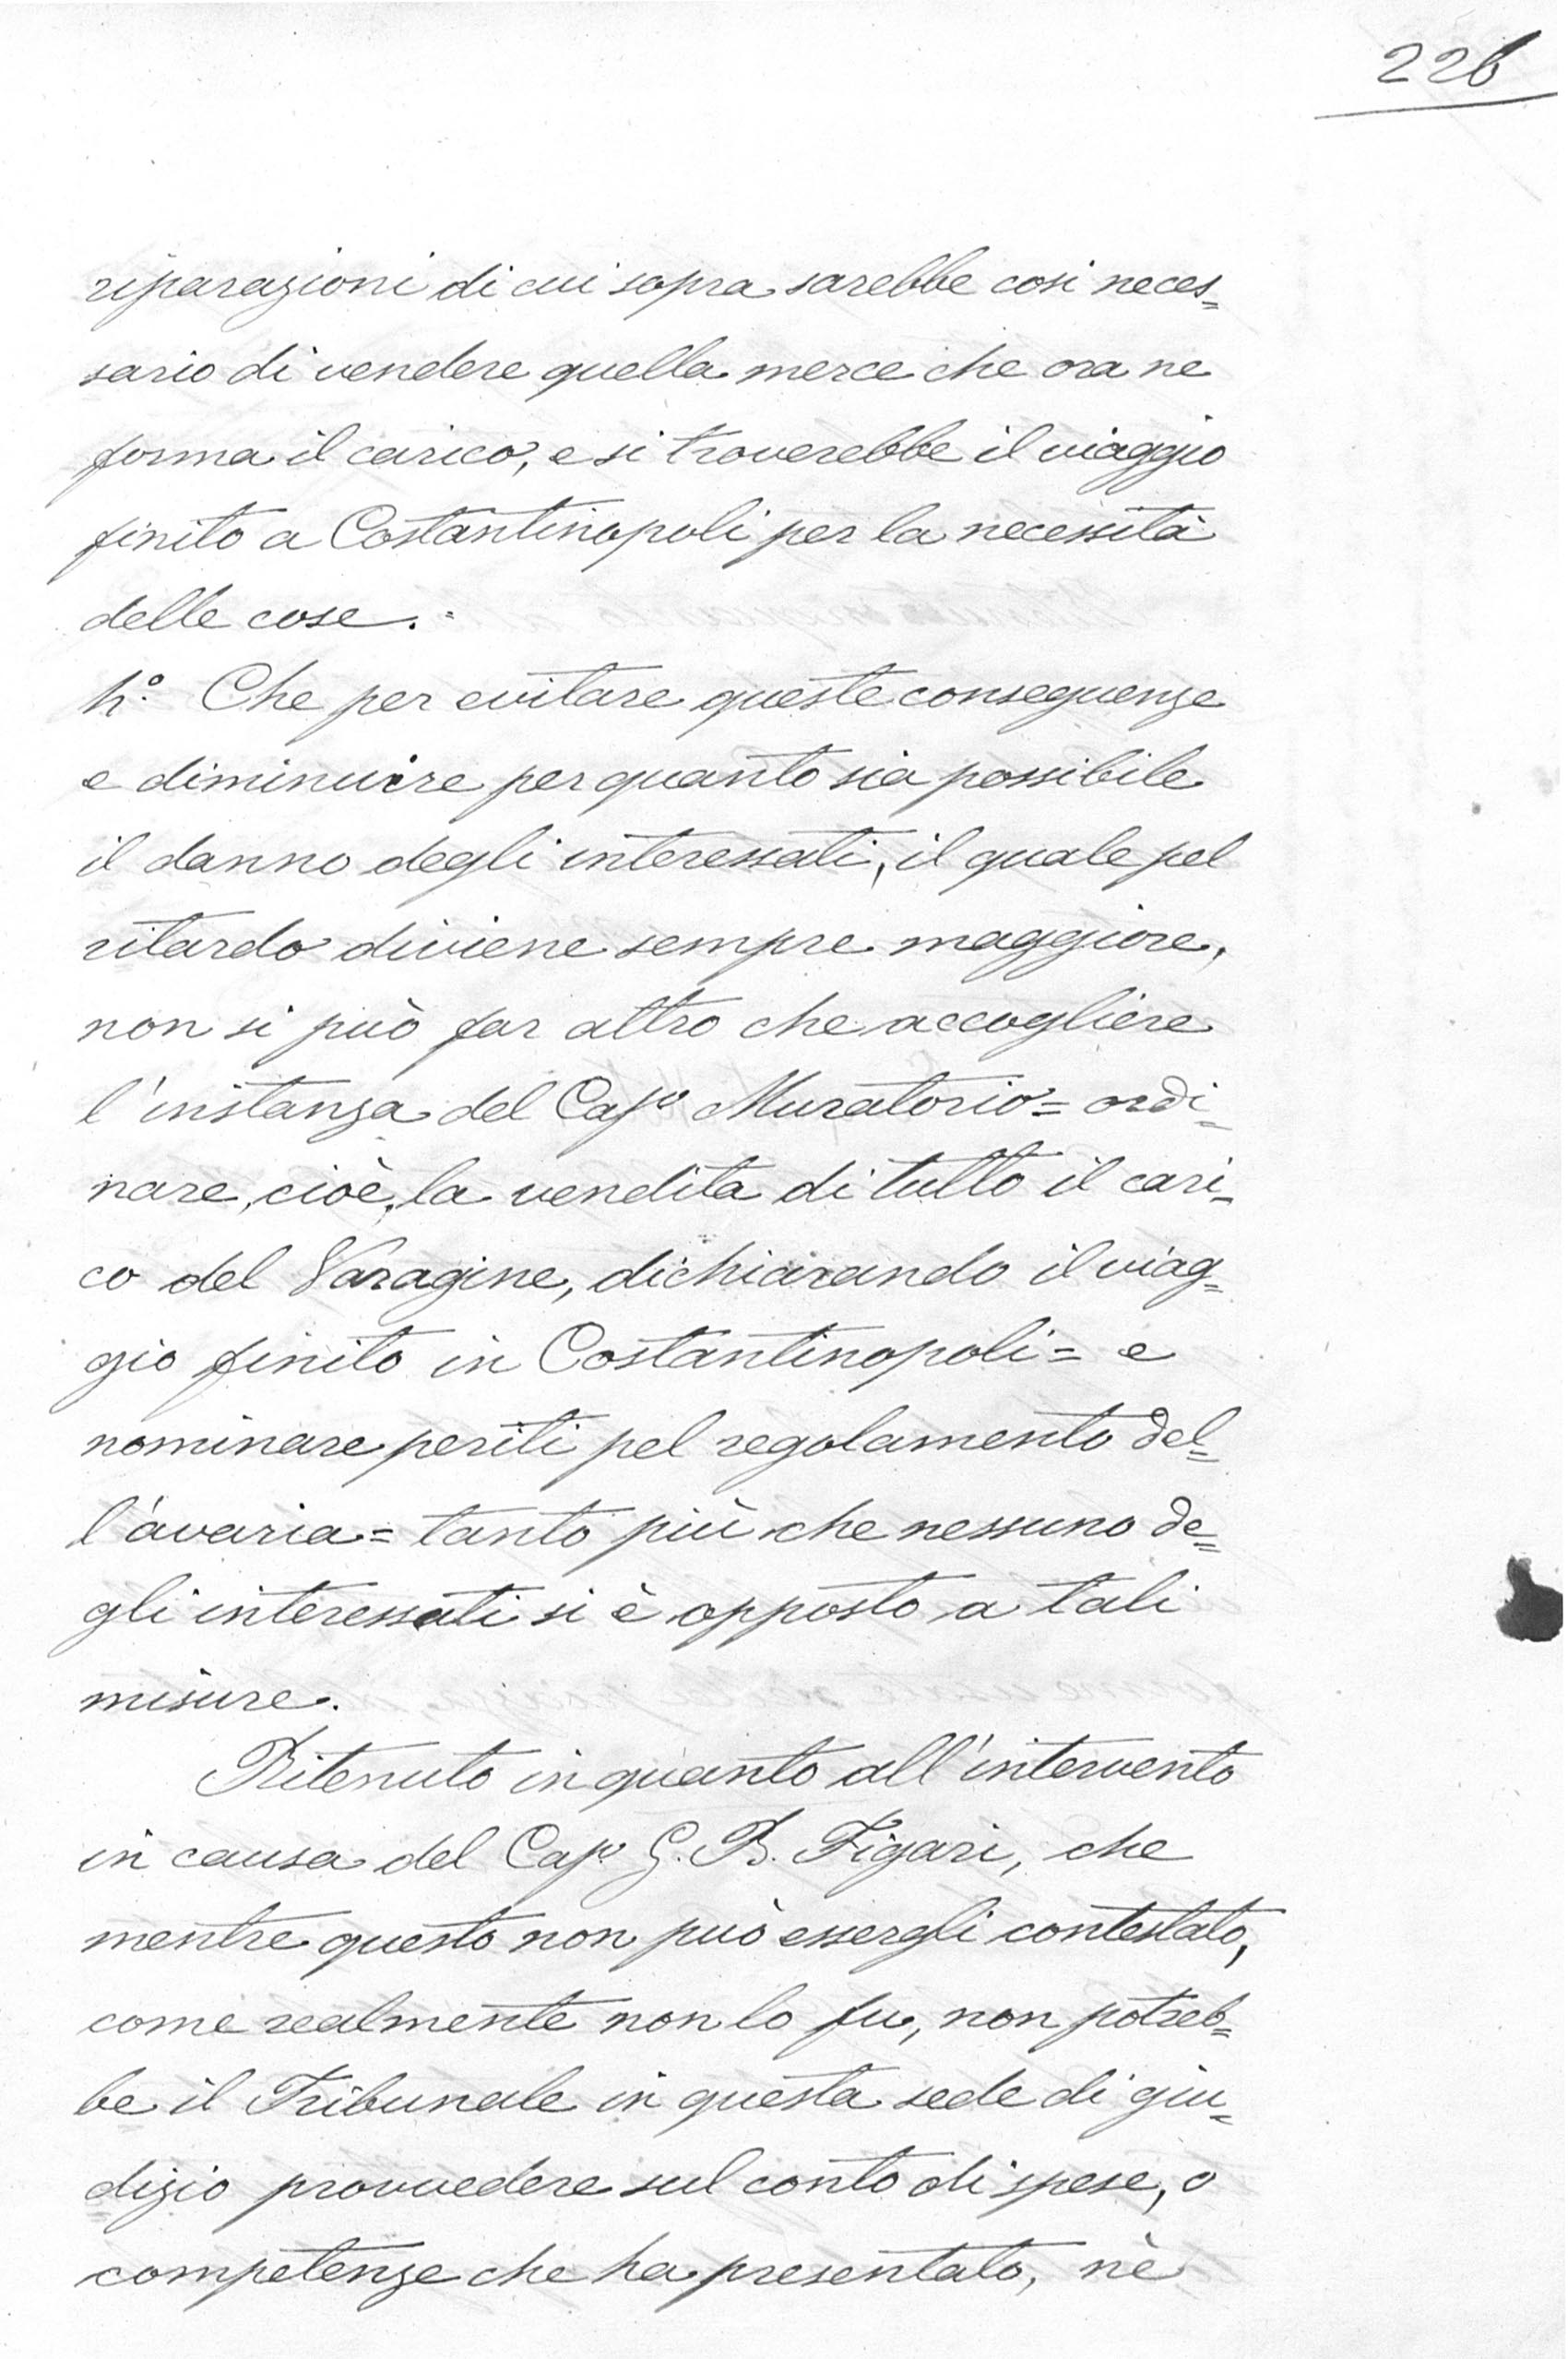 226
riparazioni di cui sopra sarebbe così neces=
sario di vendere quella merce che ora ne
forma il carico, e si troverebbe il viaggio
finito a Costantinopoli per la necessità
delle cose. =
h.° Che per evitare queste conseguenze
e diminuire per quanto sia possibile
il danno degli interessati, il quale pel
ritardo diviene sempre maggiore,
non si può far altro che accogliere
l'instanza del Cap.º Muratorio = ordi=
nare, cioè, la vendita di tutto il cari=
co del Varagine, dichiarando il viag=
gio finito in Costantinopoli = e
nominare periti pel regolamento del=
l'avaria = tanto più che nessuno de=
gli interessati si è opposto a tali
misure.
Ritenuto in quanto all'intervento
in causa del Cap.º G. B. Figari, che
mentre questo non può essergli contestato,
come realmente non lo fu, non potreb=
be il Tribunale in questa sede di giu=
dizio provvedere sul conto di spese, o
competenze che ha presentato, nè